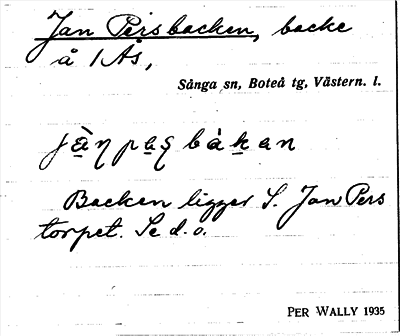 Jan Persbacken, backe
å 1 Ås,
Sånga sn, Boteå tg, Västern. l.
jä̀ŋpaʂbákan
Backen ligger S. Jan Pers
torpet. Se d. o.
PER WALLY 1935